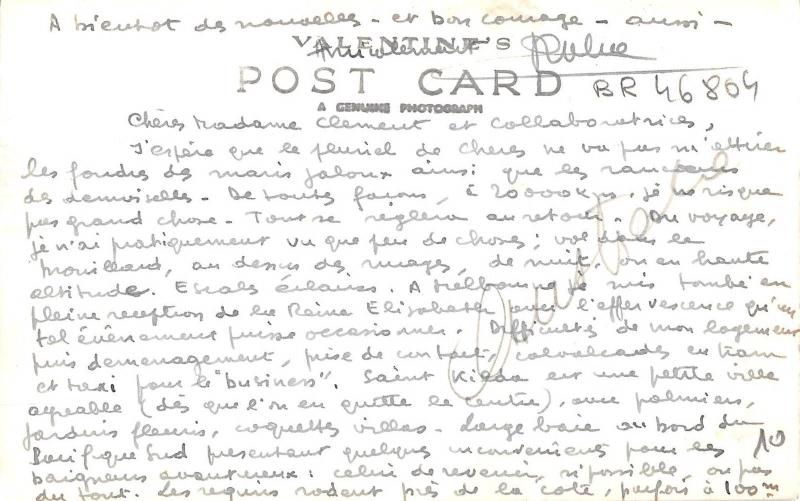 A bientot des nouvelles - et bon courage - aussi -
Amicalement
VALENTINE'S
POST CARD
BR 46804
A GENUINE PHOTOGRAPH
Chères Madame Clement et collaboratrices,
J'espère que le pluriel de Cheres ne va pas m'attirer
les foudres des maris jaloux ainsi que les rancoeurs
des demoiselles. De toutes façons, à 20000 kms, je ne risque
pas grand chose. Tout se règlera au retour. Du voyage,
je n'ai pratiquement vu que peu de choses ; vol dans le
brouillard, au dessus des nuages, de nuit, ou en haute
altitude. Escales éclairs. A Melbourne je suis tombé en
pleine reception de la Reine Elisabeth avec l'effervescence qu'un
tel évènement puisse occasionner. Difficultés de mon logement
puis demenagement, prise de contact, cavalcades en tram
et taxi pour le "business". Saint Kilda est une petite ville
agreable (dès que l'on en quitte le centre), avec palmiers,
jardins fleuris, coquettes villas. Large baie au bord du
Pacifique Sud presentant quelques inconvenients pour les
10
baigneurs avantureux : celui de revenir, si possible, ou pas
du tout. Les requins rodent près de la cote, parfois à 100m